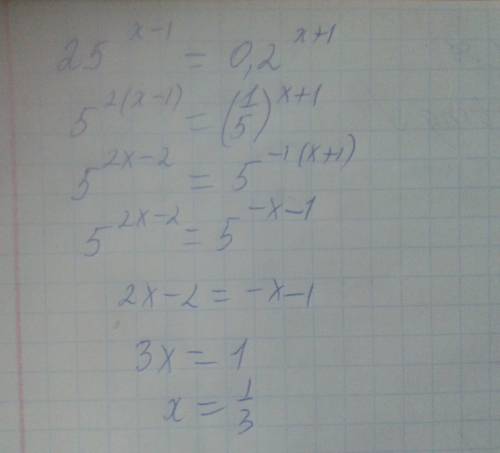 25^(x-1) = 0,2^(x+1)
5^(2(x-1)) = (1/5)^(x+1)
5^(2x-2) = 5^(-1(x+1))
5^(2x-2) = 5^(-x-1)
2x-2 = -x-1
3x = 1
x = 1/3